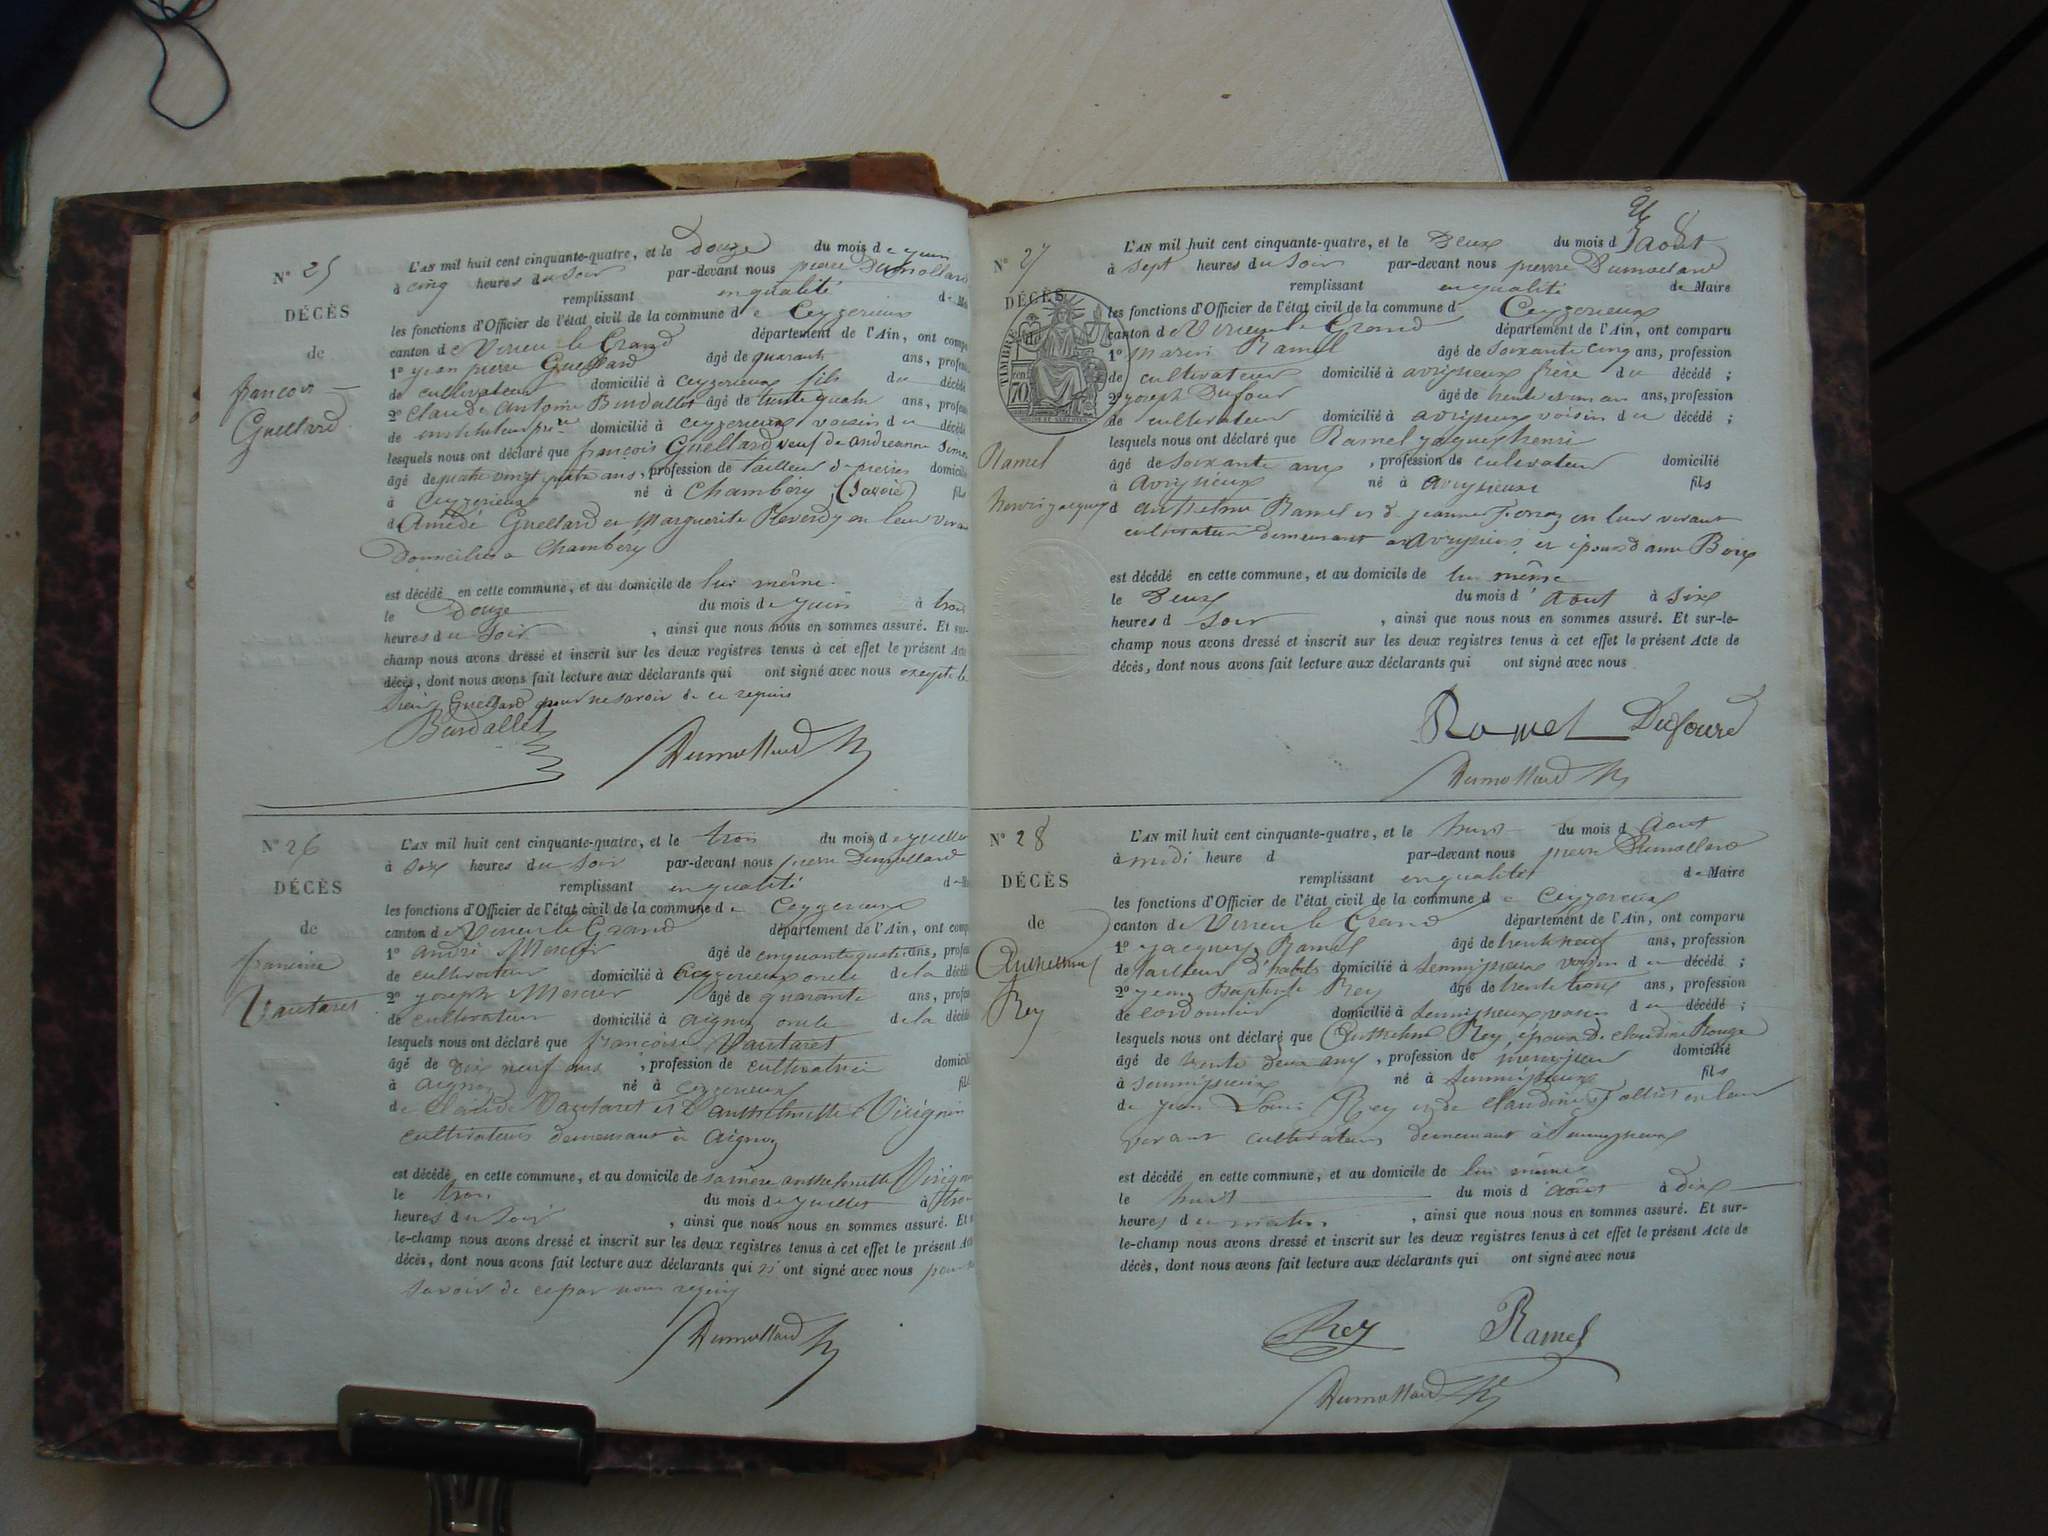 N° 25
DÉCÈS
de
françois
Guellard
L'AN mil huit cent cinquante-quatre, et le Douze du mois de juin
à cinq heures du soir par-devant nous pierre Dumollard
remplissant en qualité de Mai
les fonctions d'Officier de l'état civil de la commune de Ceyzerieux
canton de Virieu le Grand département de l'Ain, ont compa
1° jean pierre Guellard âgé de quarante ans, profes
de cultivateur domicilié à Ceyzerieux fils du décédé
2° Claude Antoine Burdallet âgé de trente quatre ans, profes
de instituteur domicilié à Ceyzerieux voisin du décédé
lesquels nous ont déclaré que françois Guellard veuf de andréanne
âgé de quatre vingt quatre ans, profession de tailleur de pierres domicilié
à Ceyzerieux né à Chambéry (Savoie) fils
d'Amédé Guellard et Marguerite Reverdy en leur vivant
Domiciliés à Chambéry
est décédé en cette commune, et au domicile de lui même
le Douze du mois de juin à trois
heures du soir, ainsi que nous nous en sommes assuré. Et sur-
champ nous avons dressé et inscrit sur les deux registres tenus à cet effet le présent Acte
décès, dont nous avons fait lecture aux déclarants qui ont signé avec nous excepté le
sieur Guellard pour ne savoir de ce requis
Burdallet
Dumollard
N° 26
DÉCÈS
de
Vautaret
L'AN mil huit cent cinquante-quatre, et le trois du mois de juillet
à six heures du soir par-devant nous pierre Dumollard
remplissant en qualité de
les fonctions d'Officier de l'état civil de la commune de Ceyzerieux
canton de Virieu le Grand département de l'Ain, ont comp
1° andré Mercier âgé de cinquante quatre ans, profes
de cultivateur domicilié à Ceyzerieux oncle de la décédé
2° joseph Mercier âgé de quarante ans, profes
de cultivateur domicilié à aignoz oncle de la décédé
lesquels nous ont déclaré que françoise Vautaret
âgé de Dix neuf ans, profession de cultivatrice domicilié
à aignoz né à Ceyzerieux fils
de Claude Vautaret et d'anthelmette Virignin
cultivateurs demeurant à aignoz
est décédé en cette commune, et au domicile de sa mère anthelmette
le trois du mois de juillet à trois
heures du soir, ainsi que nous nous en sommes assuré. Et
le-champ nous avons dressé et inscrit sur les deux registres tenus à cet effet le présent Acte
décès, dont nous avons fait lecture aux déclarants qui n'ont signé avec nous pour
savoir de ce par nous requis
Dumollard
N° 27
DÉCÈS
de
TIMBRE
70
Ramel
henri jacques
L'AN mil huit cent cinquante-quatre, et le Deux du mois d'août
à sept heures du soir par-devant nous pierre Dumollard
remplissant en qualité de Maire
les fonctions d'Officier de l'état civil de la commune de Ceyzerieux
canton de Virieu le Grand département de l'Ain, ont comparu
1° Marin Ramel âgé de soixante cinq ans, profession
de cultivateur domicilié à avrissieux frère du décédé ;
2° joseph Dufour âgé de trente et un ans, profession
de cultivateur domicilié à avrissieux voisin du décédé ;
lesquels nous ont déclaré que Ramel jaques henri
âgé de soixante ans, profession de cultivateur domicilié
à avrissieux né à avrissieux fils
d'anthelme Ramel et d jeanne en leur vivant
cultivateur demeurant à avrissieux, et époux d'anne
est décédé en cette commune, et au domicile de lui même
le Deux du mois d'Août à six
heures d soir, ainsi que nous nous en sommes assuré. Et sur-le-
champ nous avons dressé et inscrit sur les deux registres tenus à cet effet le présent Acte de
décès, dont nous avons fait lecture aux déclarants qui ont signé avec nous
Ramel Dufour
Dumollard
N° 28
DÉCÈS
de
Anthelme
Rey
L'AN mil huit cent cinquante-quatre, et le huit du mois d Août
à midi heure d par-devant nous pierre Dumollard
remplissant en qualité de Maire
les fonctions d'Officier de l'état civil de la commune de Ceyzerieux
canton de Virieu le Grand département de l'Ain, ont comparu
1° Jacques Ramel âgé de trente neuf ans, profession
de tailleur d'habits domicilié à voisin du décédé ;
2° jean Baptiste Rey âgé de trente trois ans, profession
de cordonnier domicilié à voisin du décédé ;
lesquels nous ont déclaré que Anthelme Rey, époux de claudine Rouge
âgé de trente deux ans, profession de menuisier domicilié
à né à fils
de jean Louis Rey et de claudine en leur
vivant cultivateurs demeurant à
est décédé en cette commune, et au domicile de lui même
le huit du mois d'août à dix
heures du matin, ainsi que nous nous en sommes assuré. Et sur-
le-champ nous avons dressé et inscrit sur les deux registres tenus à cet effet le présent Acte de
décès, dont nous avons fait lecture aux déclarants qui ont signé avec nous
Rey Ramel
Dumollard